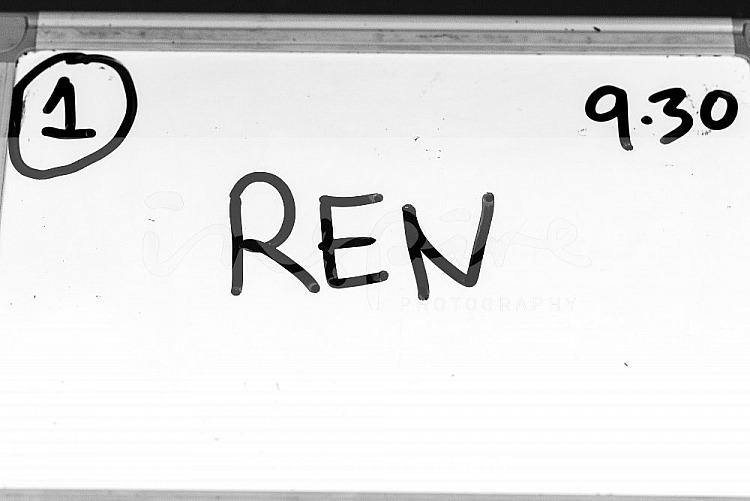 1 9.30
REN
inspire
PHOTOGRAPHY